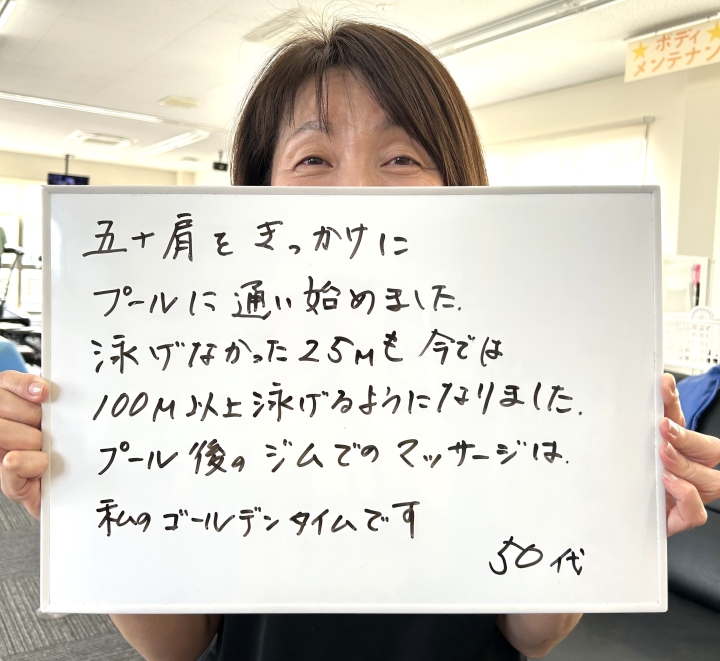 ボディ
メンテナン
五十肩をきっかけに
プールに通い始めました.
泳げなかった25Mも今では
100M以上泳げるようになりました.
プール後のジムでのマッサージは.
私のゴールデンタイムです
50代